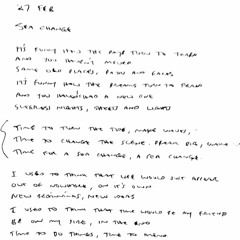 27 FEB
SEA CHANGE
IT'S FUNNY HOW THE DAYS TURN TO YEARS
AND YOU HAVEN'T MOVED
SAME OLD PLACES, FACES AND
IT'S FUNNY HOW THE DREAMS TURN TO
AND YOU HAVEN'T HAD A NEW ONE
SLEEPLESS NIGHTS, AND LIGHTS
TIME TO TURN THE TIDE, MAKE WAVES,
TIME TO CHANGE THE SCENE, DREAM BIG,
TIME FOR A SEA CHANGE, A SEA CHANGE
I USED TO THINK THAT LIFE WOULD JUST APPEAR
OUT OF NOWHERE, ON IT'S OWN
NEW BEGINNINGS, NEW IDEAS
I USED TO THINK THAT TIME WOULD BE MY FRIEND
BE ON MY SIDE, IN THE END
TIME TO DO THINGS, TIME TO MEND